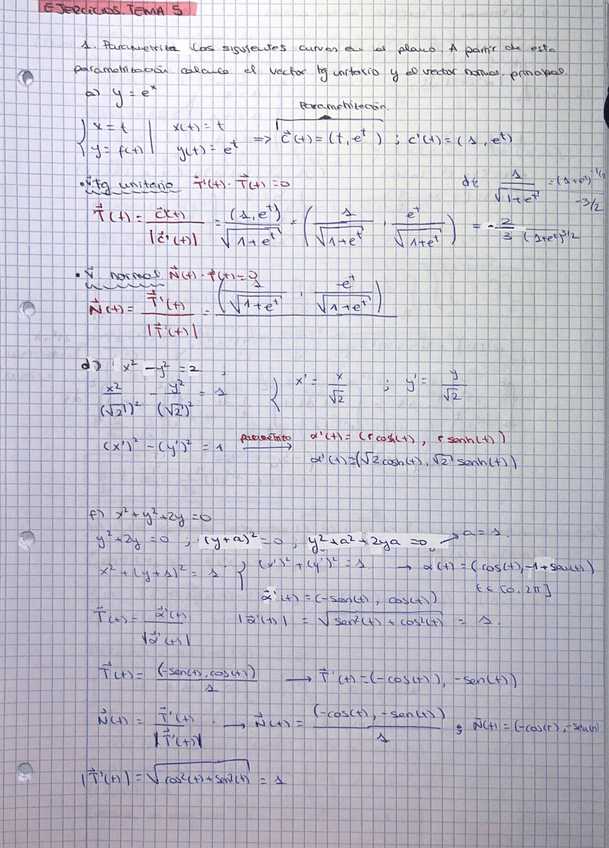 EJERCICIOS TEMA 5
1. Parametriza las siguientes curvas en el plano. A partir de esta
parametrización calcula el vector tg unitario y el vector normal principal.
a) y = e^x
Parametrización.
{ x = t | x(t) = t
y = f(t) | y(t) = e^t => c⃗(t) = (t, e^t) ; c'(t) = (1, e^t)
• v tg unitario T⃗'(t) · T⃗(t) = 0
dt 1/√(1+e^t) = (1+e^t)^(-1/2)
-3/2
T⃗(t) = c⃗'(t)/|c⃗'(t)| = (1, e^t)/√(1+e^t) = (1/√(1+e^t), e^t/√(1+e^t))
= -2/3 (1+e^t)^(3/2)
• v normal N⃗(t) · T⃗(t) = 0
N⃗(t) = T⃗'(t)/|T⃗'(t)| = (1/√(1+e^t), -e^t/√(1+e^t))
d) x² - y² = 2 ;
x²/(√2)² - y²/(√2)² = 1 { x' = x/√2 ; y' = y/√2
(x')² - (y')² = 1 parámetro → α'(t) = (r cosh(t), r senh(t))
α'(t) = (√2 cosh(t), √2 senh(t))
f) x² + y² + 2y = 0
y² + 2y = 0 , (y+a)² = 0 , y² + a² + 2ya = 0 → a = 1.
x² + (y+1)² = 1 { (x')² + (y')² = 1 → α(t) = (cos(t), -1 + sen(t))
t ∈ [0, 2π]
α⃗'(t) = (-sen(t), cos(t))
T⃗(t) = α⃗'(t)/|α⃗'(t)| |α⃗'(t)| = √(sen²(t) + cos²(t)) = 1.
T⃗(t) = (-sen(t), cos(t))/1 → T⃗'(t) = (-cos(t), -sen(t))
N⃗(t) = T⃗'(t)/|T⃗'(t)| · → N⃗(t) = (-cos(t), -sen(t))/1 ; N⃗(t) = (-cos(t), -sen(t)
|T⃗'(t)| = √(cos²(t) + sen²(t)) = 1